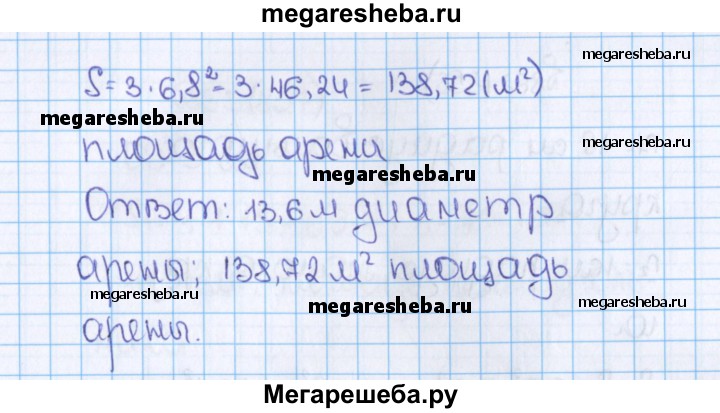 megaresheba.ru
megaresheba.ru
S = 3·6,8² = 3·46,24 = 138,72 (м²)
megaresheba.ru
площадь арены
megaresheba.ru
megaresheba.ru
Ответ: 13,6 м диаметр
арены; 138,72 м² площадь
megaresheba.ru
megaresheba.ru
megaresheba.ru
арены.
Мегарешеба.ру